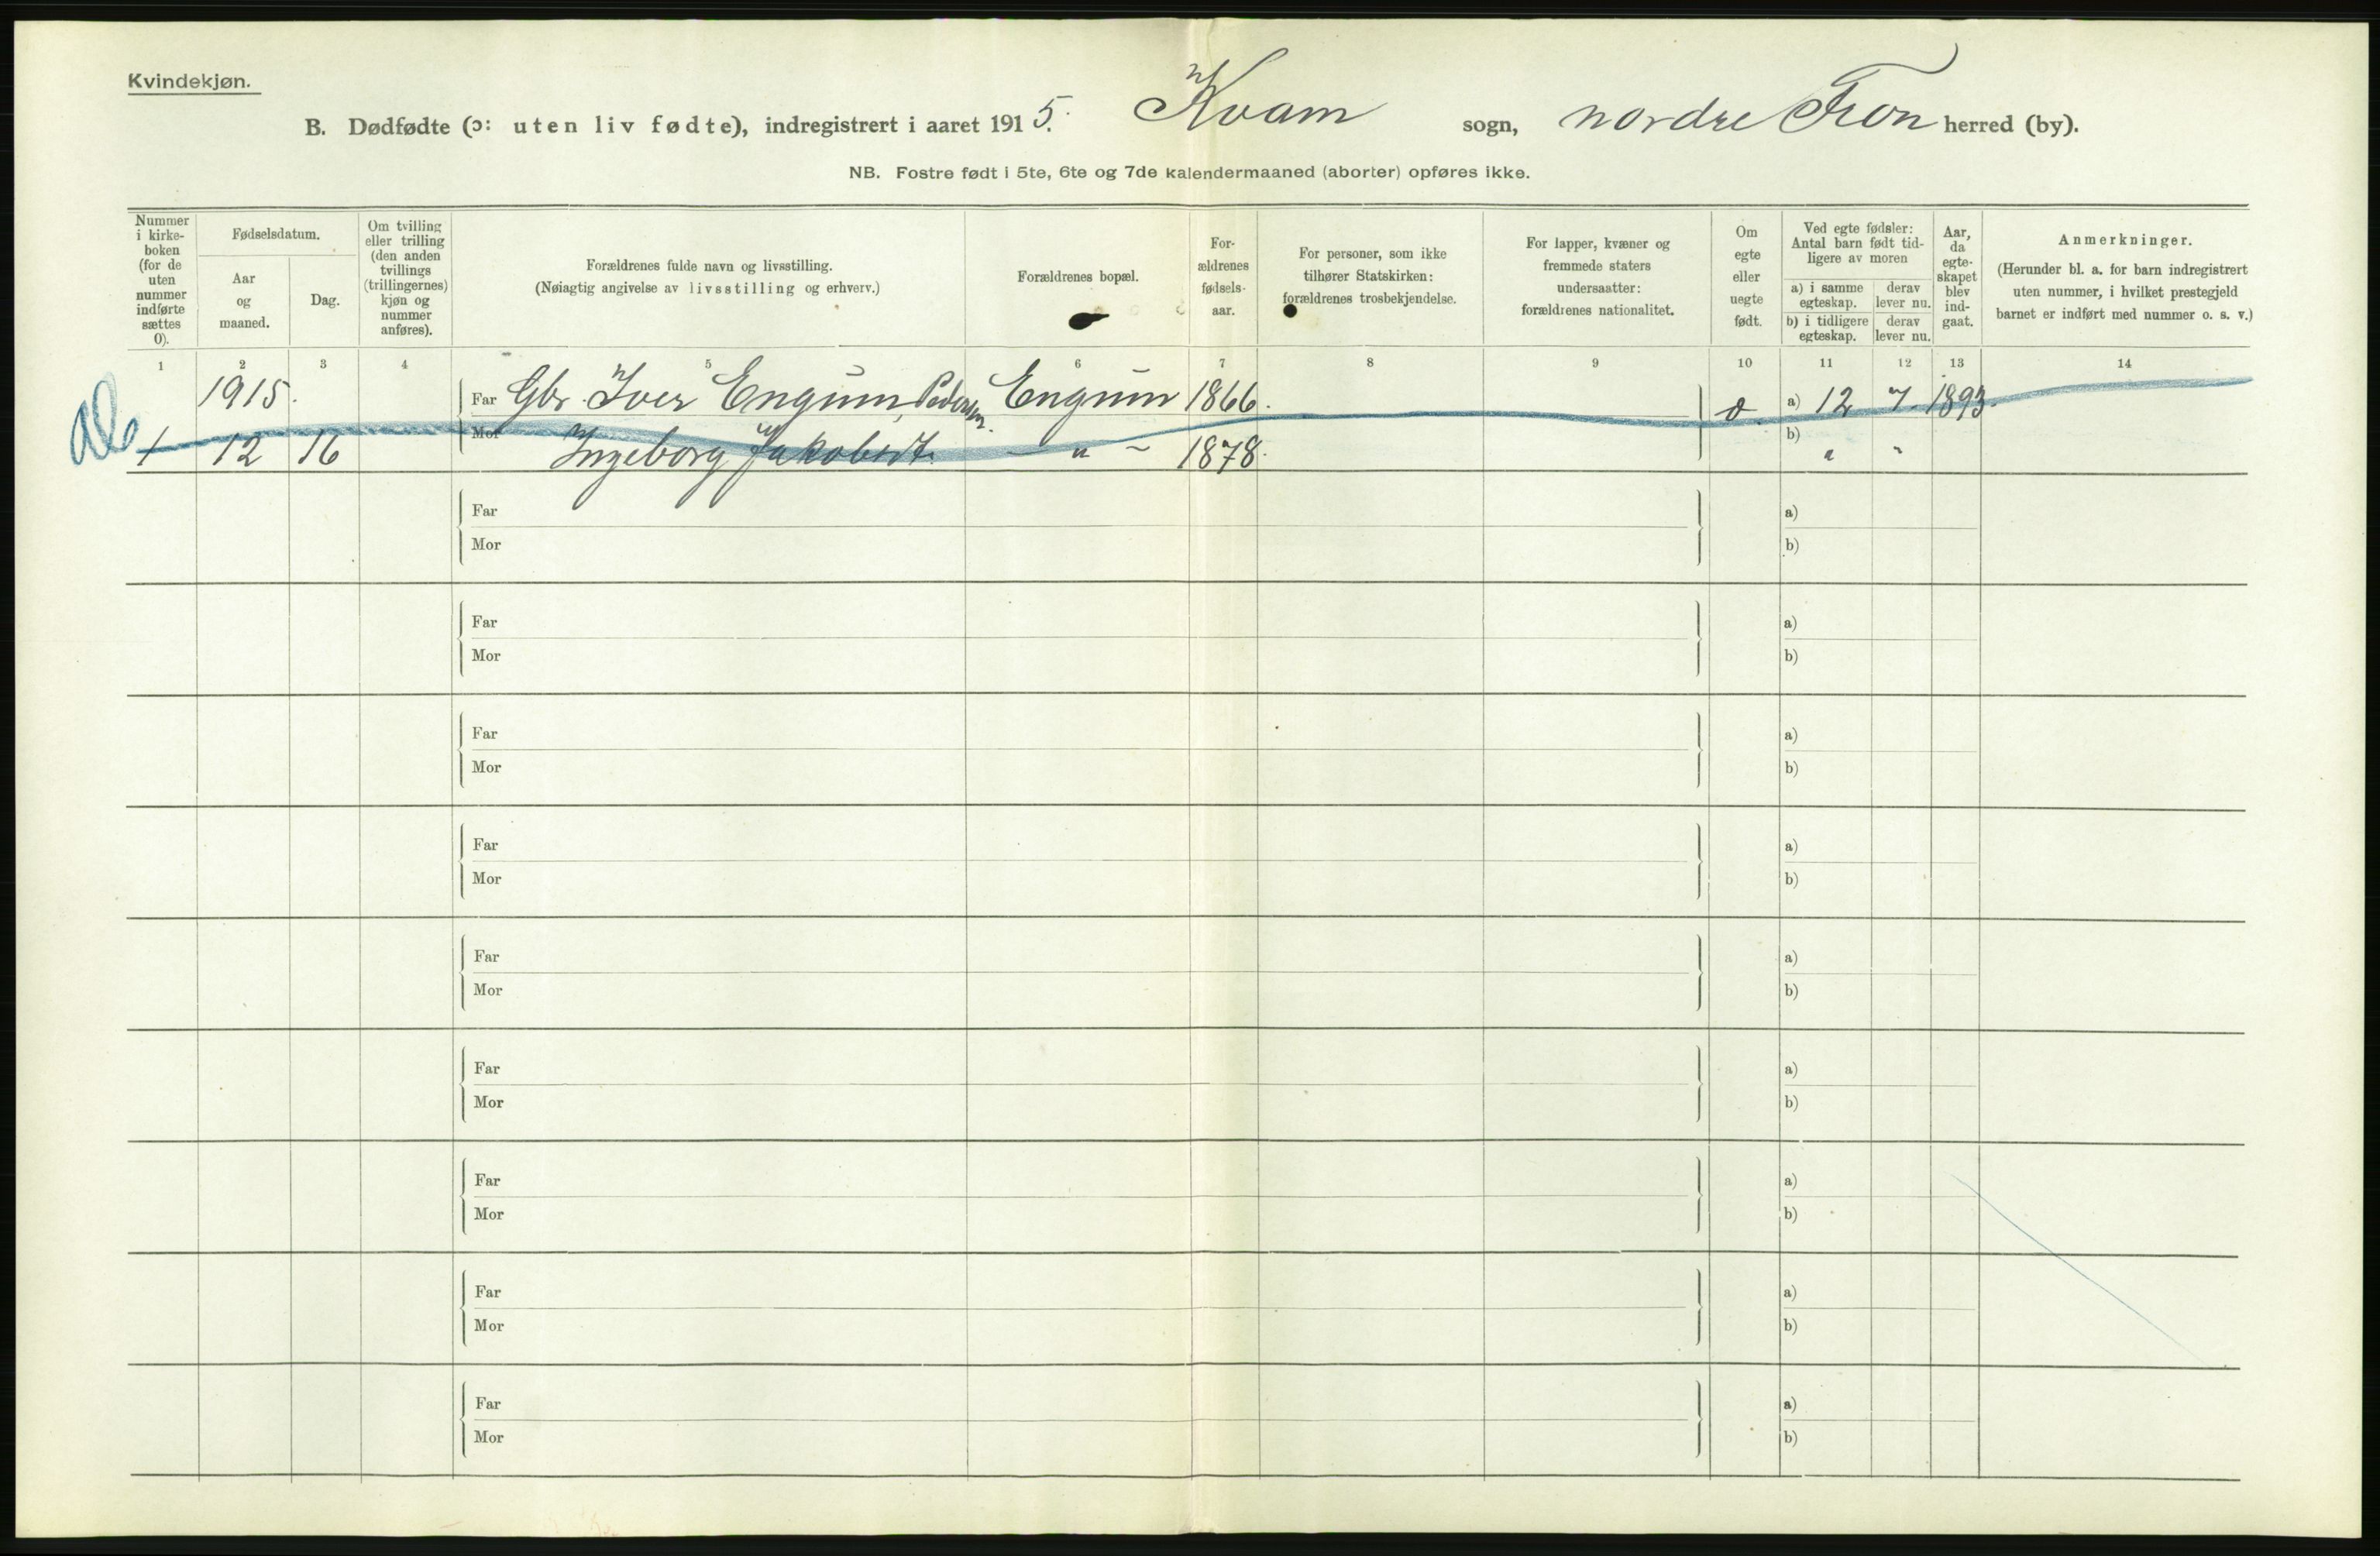 Kvindekjøn.
B. Dødfødte (ɔ: uten liv fødte), indregistrert i aaret 1915. Kvam sogn, nordre Fron herred (by).
NB. Fostre født i 5te, 6te og 7de kalendermaaned (aborter) opføres ikke.
Nummer i kirke-boken (for de uten nummer indførte sættes 0).
Fødselsdatum.
Aar og maaned.
Dag.
Om tvilling eller trilling (den anden tvillings (trillingernes) kjøn og nummer anføres).
Forældrenes fulde navn og livsstilling.
(Nøiagtig angivelse av livsstilling og erhverv.)
Forældrenes bopæl.
For-ældrenes fødsels-aar.
For personer, som ikke tilhører Statskirken: forældrenes trosbekjendelse.
For lapper, kvæner og fremmede staters undersaatter: forældrenes nationalitet.
Om egte eller uegte født.
Ved egte fødsler: Antal barn født tid-ligere av moren
a) i samme egteskap.
derav lever nu.
b) i tidligere egteskap.
derav lever nu.
Aar, da egte-skapet blev ind-gaat.
Anmerkninger.
(Herunder bl. a. for barn indregistrert uten nummer, i hvilket prestegjeld barnet er indført med nummer o. s. v.)
1 2 3 4 5 6 7 8 9 10 11 12 13 14
1915. Far Gbr. Iver Engum, Pedersen. Engum 1866. a) 12 7 1893.
1 12 16 Mor Ingeborg Jakobsdt. - " - 1878. b) " "
Far a)
Mor b)
Far a)
Mor b)
Far a)
Mor b)
Far a)
Mor b)
Far a)
Mor b)
Far a)
Mor b)
Far a)
Mor b)
Far a)
Mor b)
Far a)
Mor b)